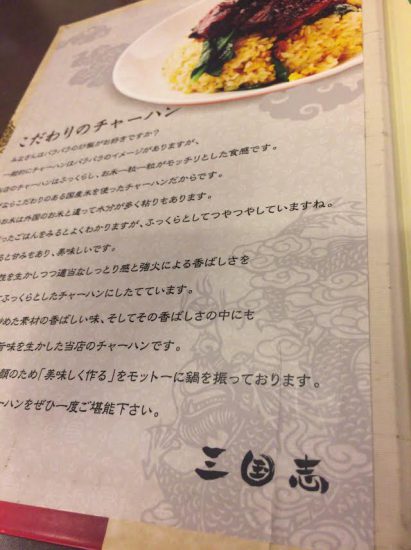 こだわりのチャーハン
みなさんはパラパラの炒飯がお好きですか?
一般的にチャーハンはパラパラのイメージがありますが、
店のチャーハンはふっくらし、お米一粒一粒がモッチリとした食感です。
ならこだわりのある国産米を使ったチャーハンだからです。
お米は外国のお米と違って水分が多く粘りもあります。
ったごはんをみるとよくわかりますが、ふっくらとしてつやつやしていますね。
ると甘みもあり、美味しいです。
性を生かしつつ適当なしっとり感と強火による香ばしさを
ふっくらとしたチャーハンにしたてています。
めた素材の香ばしい味、そしてその香ばしさの中にも
旨味を生かした当店のチャーハンです。
顔のため「美味しく作る」をモットーに鍋を振っております。
ーハンをぜひ一度ご堪能下さい。
三国志